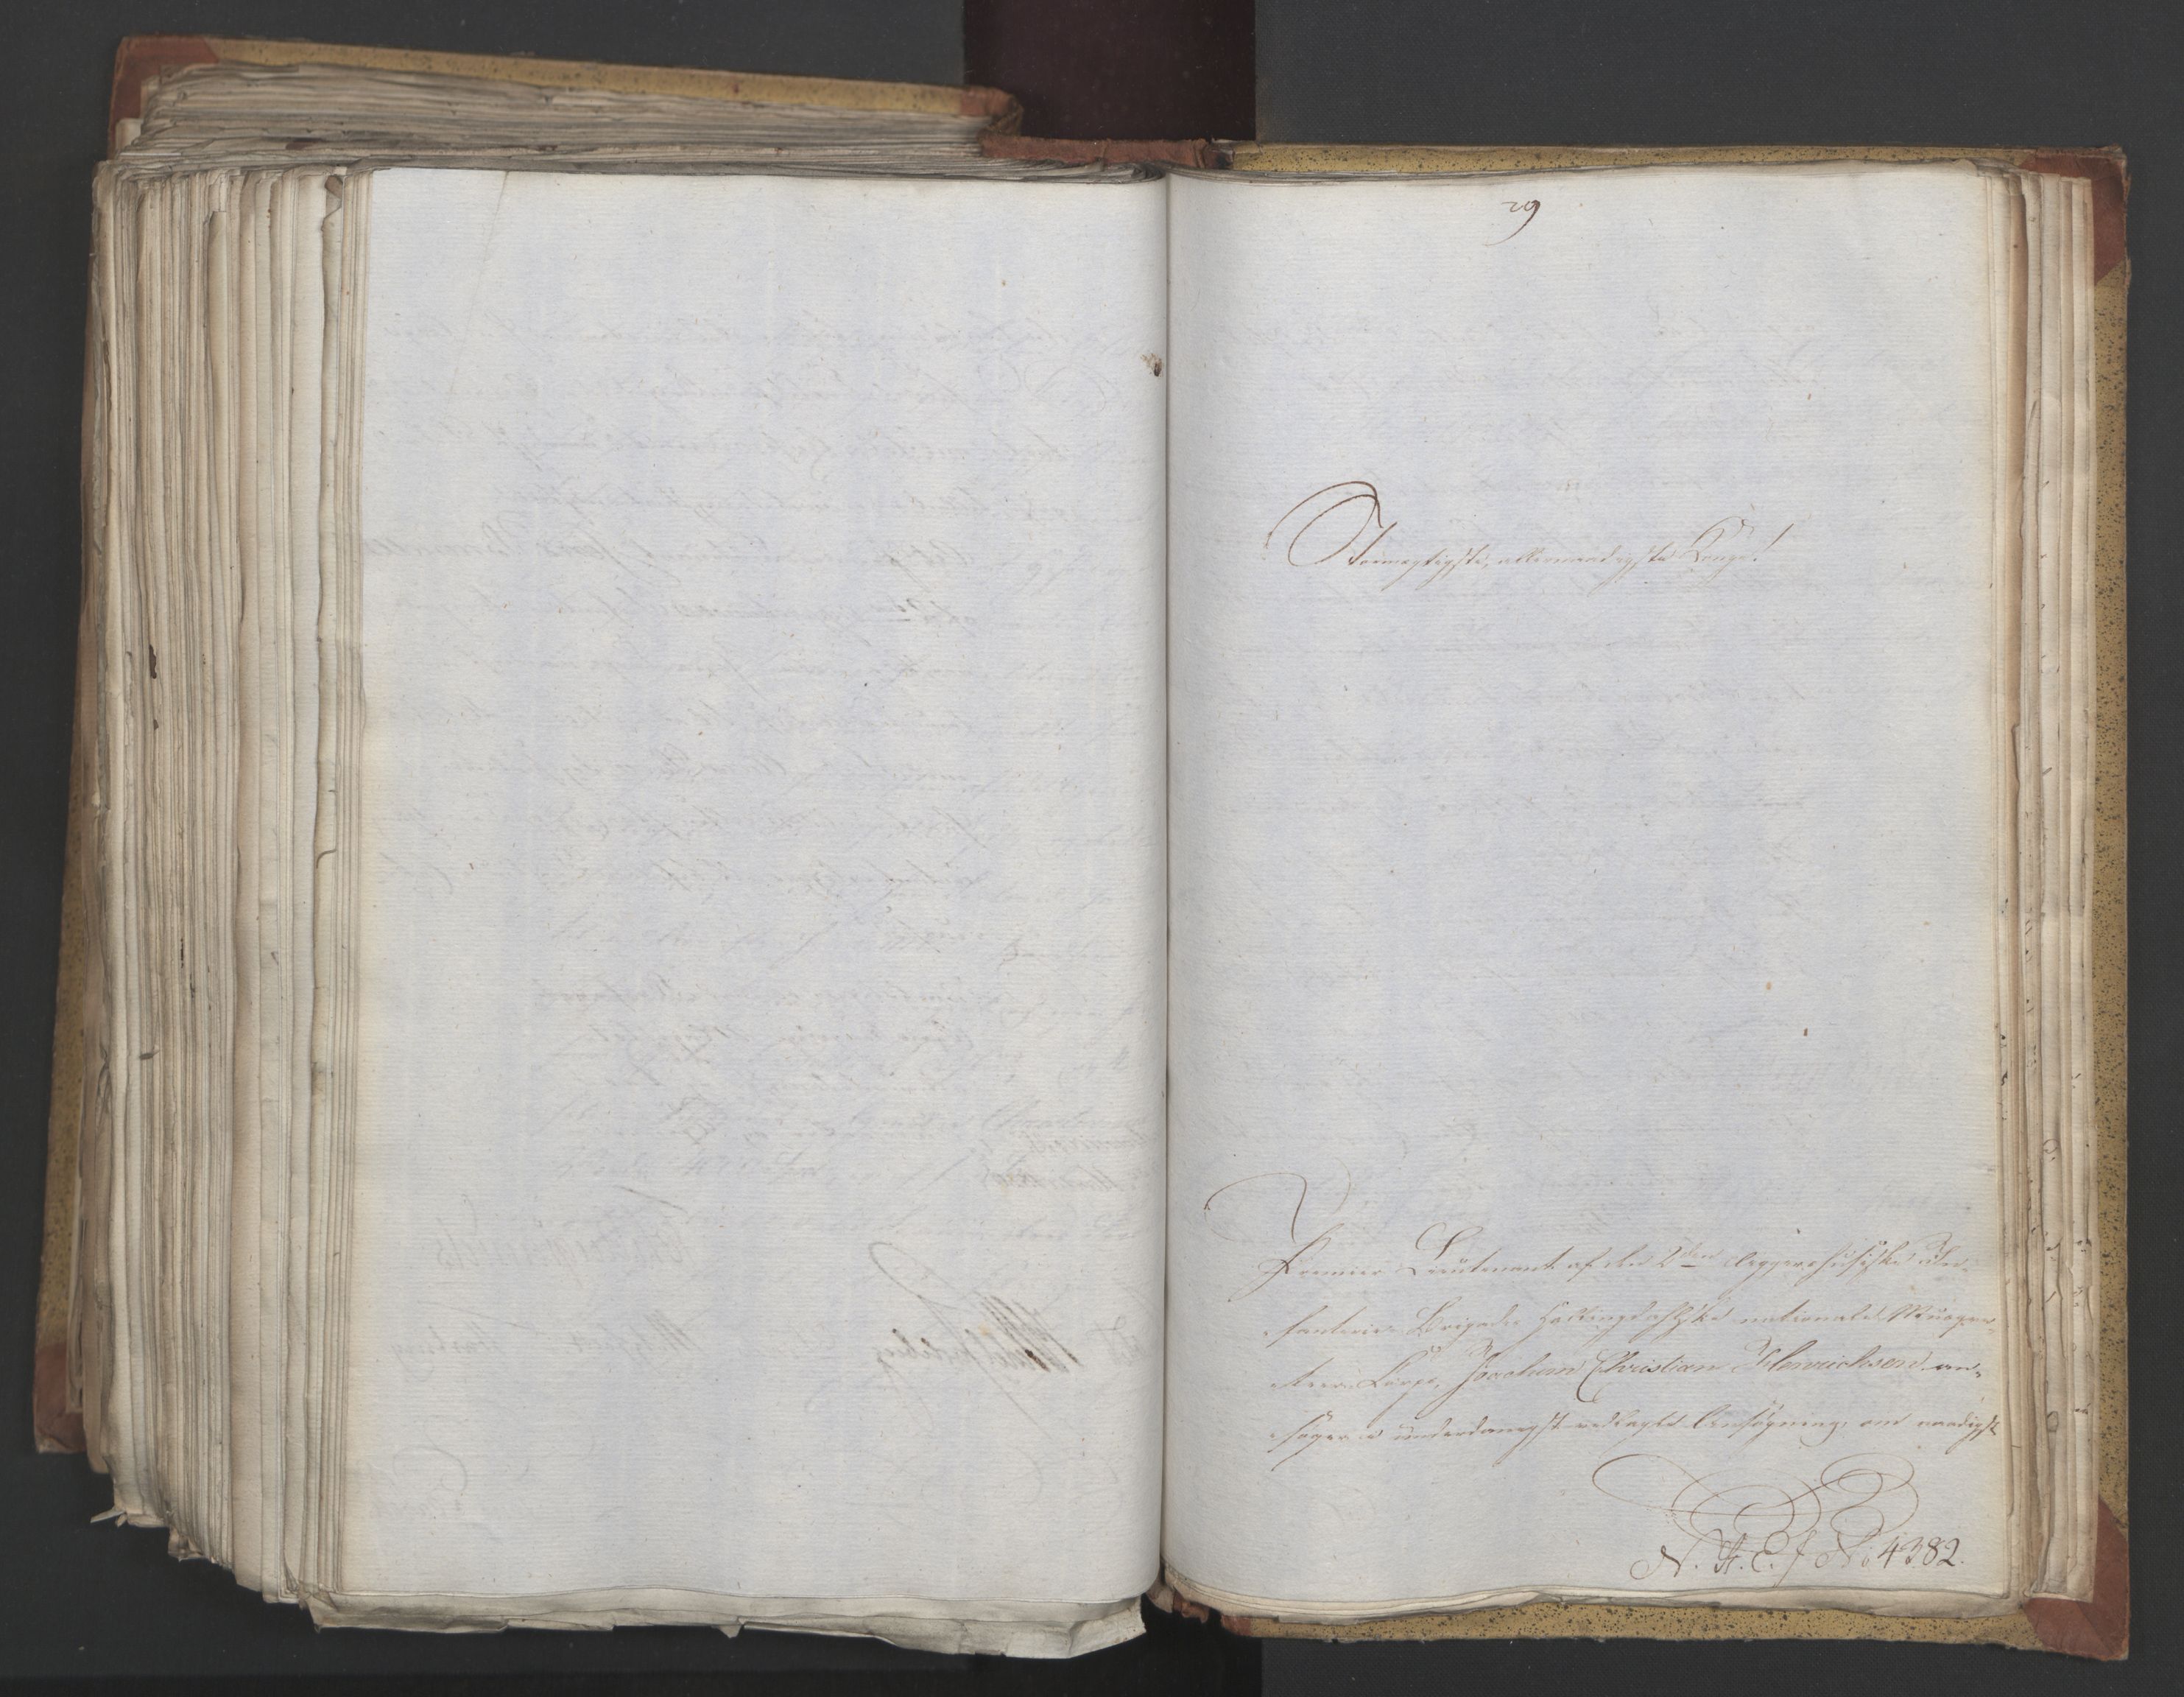 29
Stormægtigste, allernaadigste Konge!
Premier Lieutenant af den 2den Aggershusiske In-
fanterie Brigades Hallingdahlske nationale Musque-
teer Corps, Joachim Christian Henrichsen an-
søger i underdanigst vedlagte Ansøgning, om naadigst
N. St. E. f No 4382.